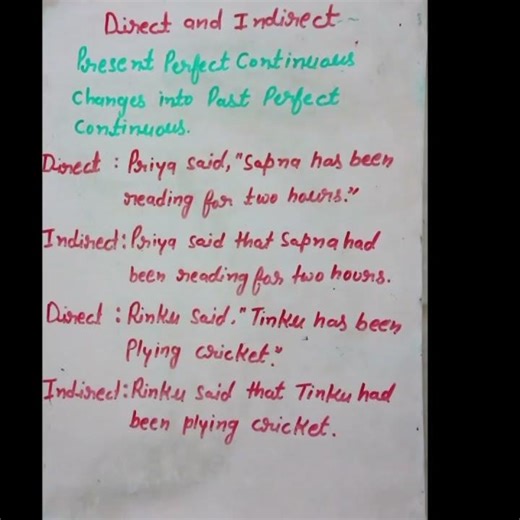 Direct and Indirect
Present Perfect Continuous
Changes into Past Perfect
Continuous.
Direct : Priya said, "Sapna has been
reading for two hours."
Indirect: Priya said that Sapna had
been reading for two hours.
Direct : Rinku said, "Tinku has been
Plying cricket."
Indirect: Rinku said that Tinku had
been plying cricket.